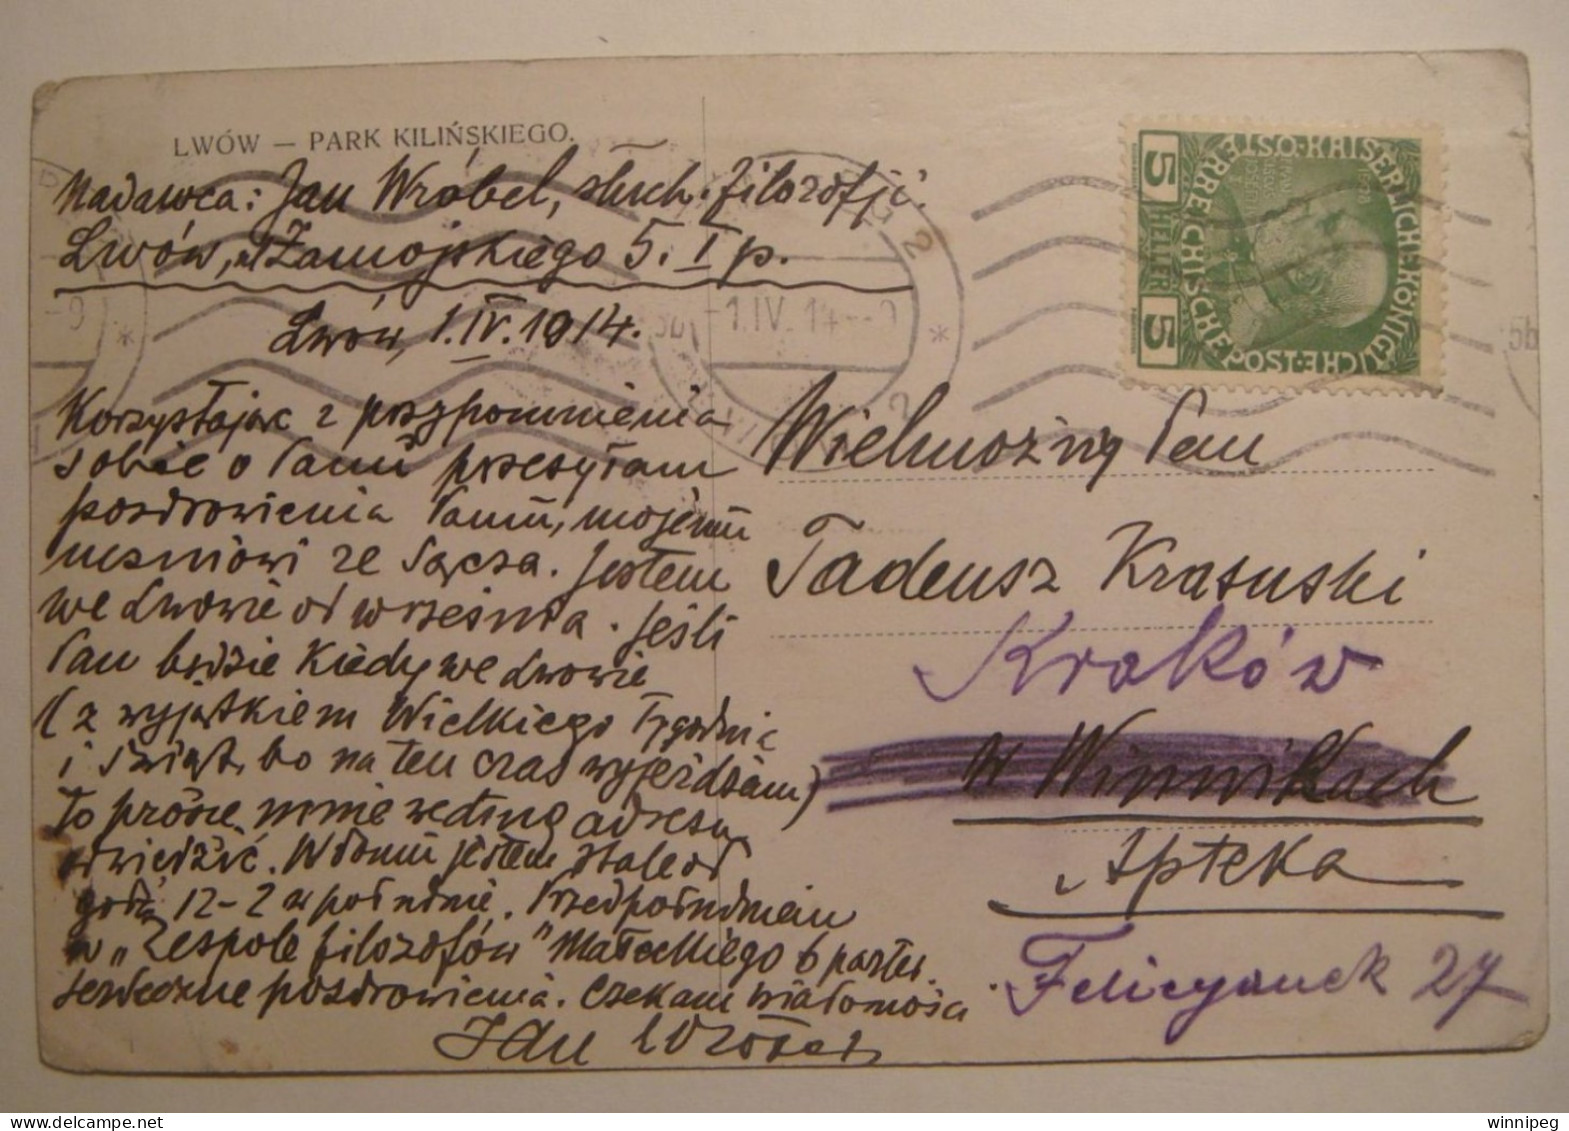 LWÓW — PARK KILIŃSKIEGO.
Nadawca: Jan Wróbel, słuch. filozofji.
Lwów, ul Zamojskiego 5. I p.
Lwów, 1.IV.1914.
Korzystając z przypomnienia
sobie o Panu przesyłam
pozdrowienia Panu, mojemu
uczniowi ze Sącza. Jestem
we Lwowie od września. Jeśli
Pan będzie kiedy we Lwowie
(z wyjątkiem Wielkiego Tygodnia
i Świąt, bo na ten czas wyjeżdżam)
to proszę mnie według adresu
odwiedzić. W domu jestem stale od
godz. 12-2 w południe. Przedpołudniem
w „Zespole filozofów" Małeckiego 6 parter.
Serdeczne pozdrowienia. Czekam wiadomości
Jan Wróbel
1.IV 14
5b
2
2
5b
ÖSTERREICHISCHE POST · KAISERLICH KÖNIGLICHE
5 HELLER 5
Wielmożny Pan
Tadeusz Krasuski
Kraków
w Winnikach
Apteka
Felicyanek 27
winnipeg